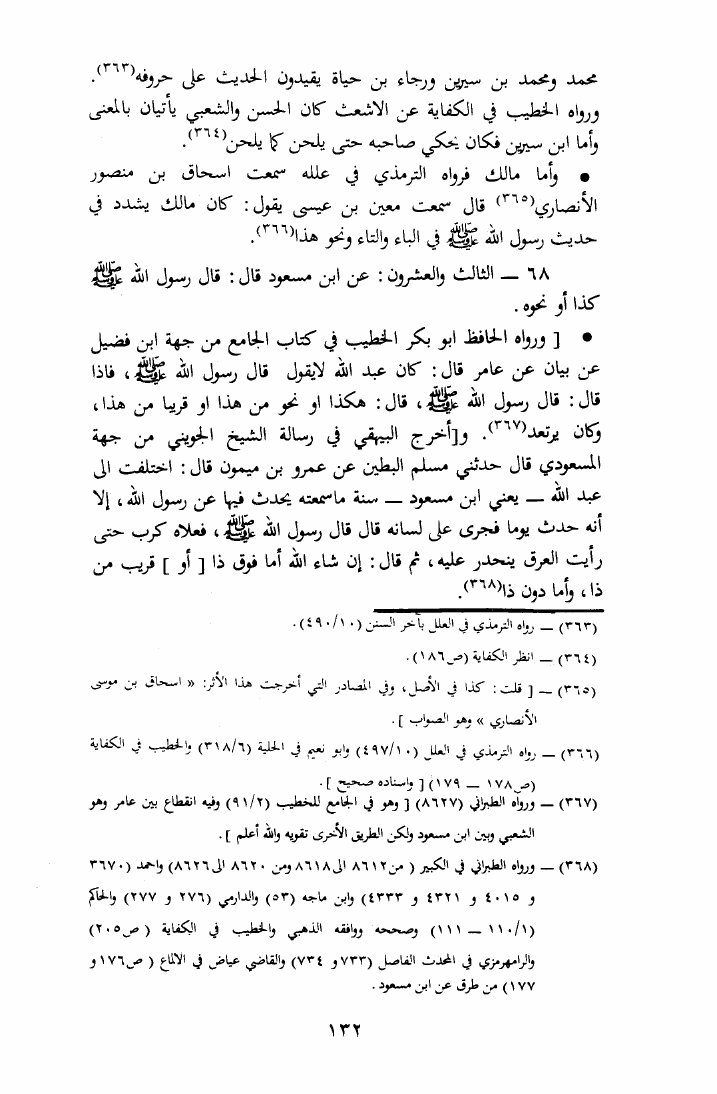 محمد ومحمد بن سيرين ورجاء بن حياة يقيدون الحديث على حروفه(٣٦٣).
ورواه الخطيب في الكفاية عن الاشعث كان الحسن والشعبي يأتيان بالمعنى
وأما ابن سيرين فكان يحكي صاحبه حتى يلحن كما يلحن(٣٦٤).
• وأما مالك فرواه الترمذي في علله سمعت اسحاق بن منصور
الأنصاري(٣٦٥) قال سمعت معين بن عيسى يقول: كان مالك يشدد في
حديث رسول الله ﷺ في الباء والتاء ونحو هذا(٣٦٦).
٦٨ — الثالث والعشرون: عن ابن مسعود قال: قال رسول الله ﷺ
كذا أو نحوه.
• [ ورواه الحافظ ابو بكر الخطيب في كتاب الجامع من جهة ابن فضيل
عن بيان عن عامر قال: كان عبد الله لايقول قال رسول الله ﷺ، فاذا
قال: قال رسول الله ﷺ، قال: هكذا او نحو من هذا او قريبا من هذا،
وكان يرتعد(٣٦٧). و[أخرج البيهقي في رسالة الشيخ الجويني من جهة
المسعودي قال حدثني مسلم البطين عن عمرو بن ميمون قال: اختلفت الى
عبد الله — يعني ابن مسعود — سنة ماسمعته يحدث فيها عن رسول الله، إلا
أنه حدث يوما فجرى على لسانه قال قال رسول الله ﷺ، فعلاه كرب حتى
رأيت العرق ينحدر عليه، ثم قال: إن شاء الله أما فوق ذا [ أو ] قريب من
ذا، وأما دون ذا(٣٦٨).
(٣٦٣) — رواه الترمذي في العلل بآخر السنن (٤٩٠/١٠).
(٣٦٤) — انظر الكفاية (ص١٨٦).
(٣٦٥) — [ قلت: كذا في الأصل، وفي المصادر التي أخرجت هذا الأثر: « اسحاق بن موسى
الأنصاري » وهو الصواب ].
(٣٦٦) — رواه الترمذي في العلل (٤٩٧/١٠) وابو نعيم في الحلية (٣١٨/٦) والخطيب في الكفاية
(ص١٧٨ — ١٧٩) [ واسناده صحيح ].
(٣٦٧) — ورواه الطبراني (٨٦٢٧) [ وهو في الجامع للخطيب (٩١/٢) وفيه انقطاع بين عامر وهو
الشعبي وبين ابن مسعود ولكن الطريق الأخرى تقويه والله أعلم ].
(٣٦٨) — ورواه الطبراني في الكبير ( من٨٦١٢ الى٨٦١٨ ومن ٨٦٢٠ الى٨٦٢٦) واحمد (٣٦٧٠
و ٤٠١٥ و ٤٣٢١ و ٤٣٣٣) وابن ماجه (٥٣) والدارمي (٢٧٦ و ٢٧٧) والحاكم
(١١٠/١ — ١١١) وصححه ووافقه الذهبي والخطيب في الكفاية ( ص٢٠٥)
والرامهرمزي في المحدث الفاصل (٧٣٣ و ٧٣٤) والقاضي عياض في الالماع ( ص١٧٦ و
١٧٧) من طرق عن ابن مسعود.
١٣٢